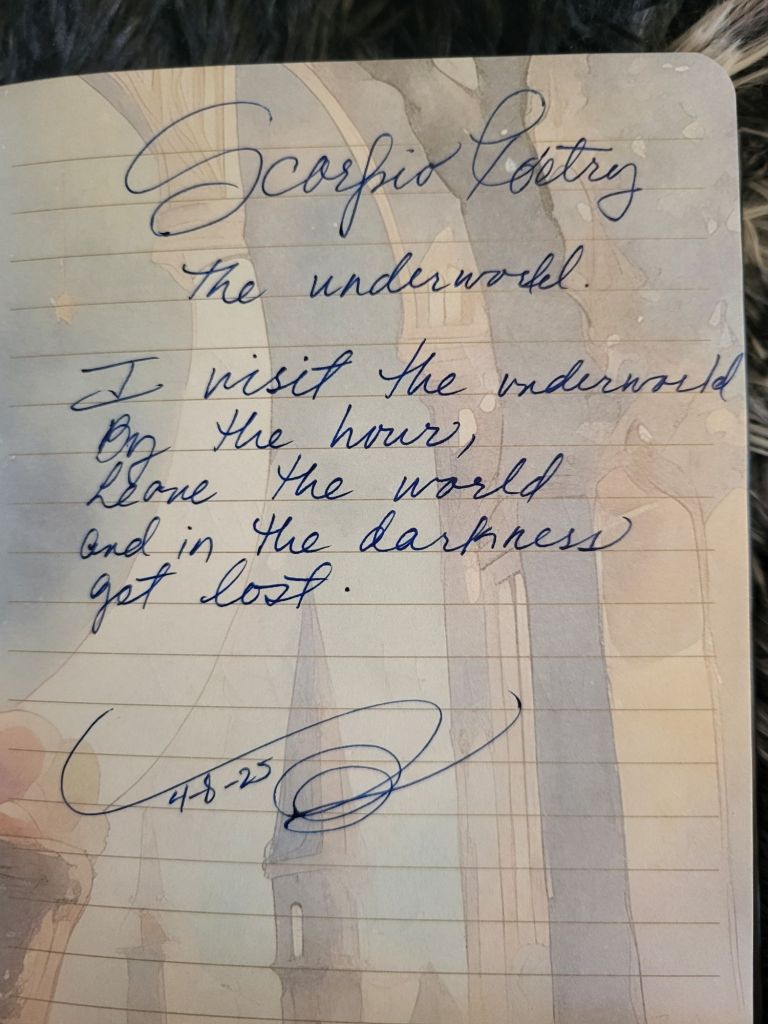 Scorpio Poetry
The underworld.
I visit the underworld
By the hour,
Leave the world
and in the darkness
get lost.
4-8-25